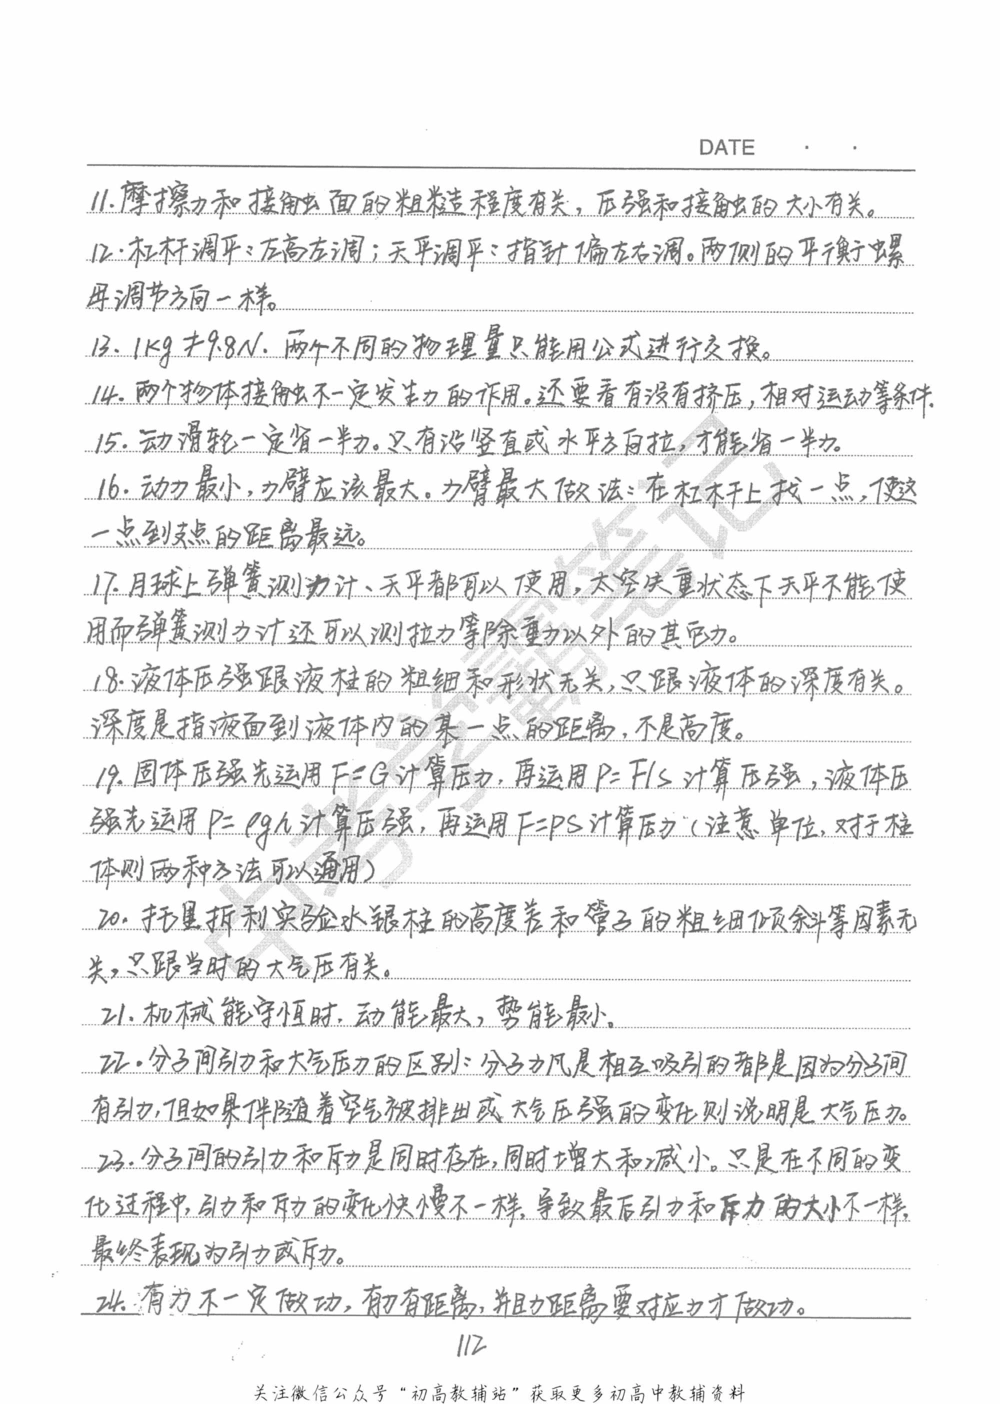 DATE · ·
11.摩擦力和接触面的粗糙程度有关，压强和接触的大小有关。
12.杠杆调平：左高左调；天平调平：指针偏左右调。两侧的平衡螺
母调节方向一样。
13. 1kg≠9.8N. 两个不同的物理量只能用公式进行交换。
14.两个物体接触不一定发生力的作用。还要看有没有挤压，相对运动等条件.
15. 动滑轮一定省一半力。只有沿竖直或水平方向拉，才能省一半力。
16.动力最小，力臂应该最大。力臂最大做法：在杠杆上找一点，使这
一点到支点的距离最远。
17.月球上弹簧测力计、天平都可以使用，太空失重状态下天平不能使
用而弹簧测力计还可以测拉力等除重力以外的其它力。
18.液体压强跟液柱的粗细和形状无关，只跟液体的深度有关。
深度是指液面到液体内的某一点的距离，不是高度。
19.固体压强先运用F=G计算压力，再运用P=F/S计算压强，液体压
强先运用P=ρgh计算压强，再运用F=PS计算压力（注意单位，对于柱
体则两种方法可以通用）
20.托里拆利实验水银柱的高度差和管子的粗细倾斜等因素无
关，只跟当时的大气压有关。
21.机械能守恒时，动能最大，势能最小。
22.分子间引力和大气压力的区别：分子力凡是相互吸引的都是因为分子间
有引力，但如果伴随着空气被排出或大气压强的变化则说明是大气压力。
23.分子间的引力和斥力是同时存在，同时增大和减小。只是在不同的变
化过程中，引力和斥力的变化快慢不一样，导致最后引力和斥力的大小不一样，
最终表现为引力或斥力。
24.有力不一定做功，有力有距离，并且力距离要对应力才做功。
112
中考学霸笔记
关注微信公众号“初高教辅站”获取更多初高中教辅资料